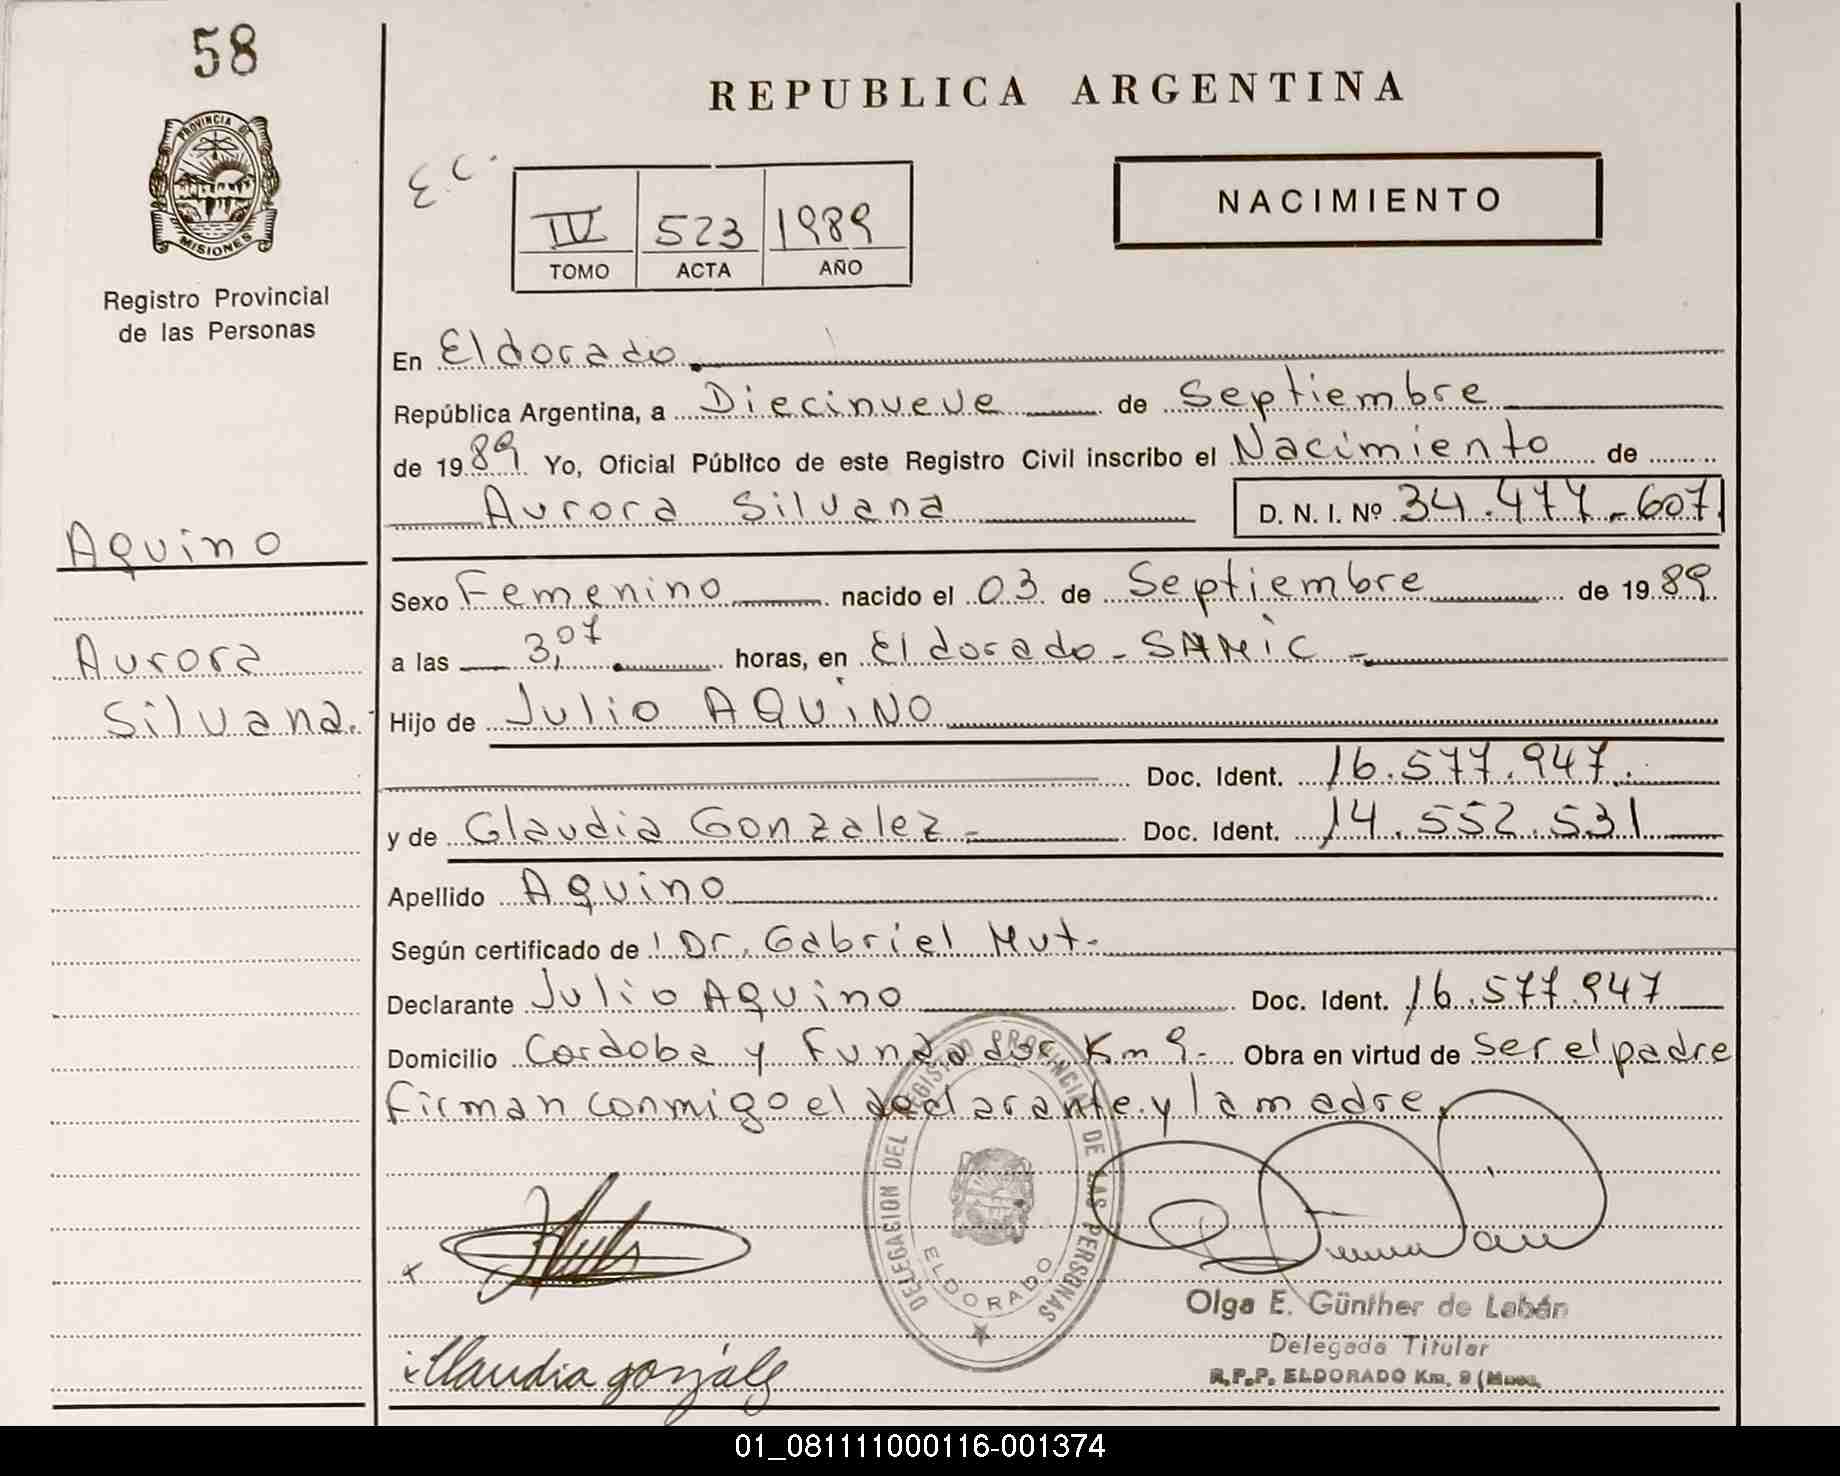 58
PROVINCIA DE
MISIONES
Registro Provincial
de las Personas
REPUBLICA ARGENTINA
E.C.
NACIMIENTO
IV 523 1989
TOMO ACTA AÑO
En Eldorado
República Argentina, a Diecinueve de Septiembre
de 1989 Yo, Oficial Público de este Registro Civil inscribo el Nacimiento de
Aurora Silvana D. N. I. Nº 34.477.607
Aquino
Aurora
Silvana.
Sexo Femenino nacido el 03 de Septiembre de 1989
a las 3,07 horas, en Eldorado - SAMIC -
Hijo de Julio AQUINO
Doc. Ident. 16.577.947.
y de Claudia Gonzalez - Doc. Ident. 14.552.531
Apellido Aquino
Según certificado de Dr. Gabriel Mut.
Declarante Julio Aquino Doc. Ident. 16.577.947
Domicilio Cordoba y Fundador Km 9.- Obra en virtud de ser el padre
firman conmigo el declarante y la madre.
DELEGACION DEL REGISTRO PROVINCIAL DE LAS PERSONAS
ELDORADO
Olga E. Günther de Labán
Delegada Titular
R.P.P. ELDORADO Km. 9 (Mnes.
Claudia gonzalez
01_081111000116-001374